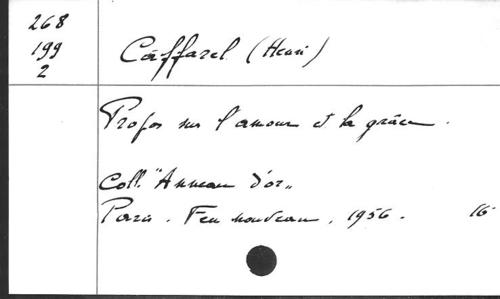 268
199
2
Caffarel (Henri)
Propos sur l'amour et la grâce.
Coll. "Anneau d'or"
Paris. Feu nouveau, 1956. 16°